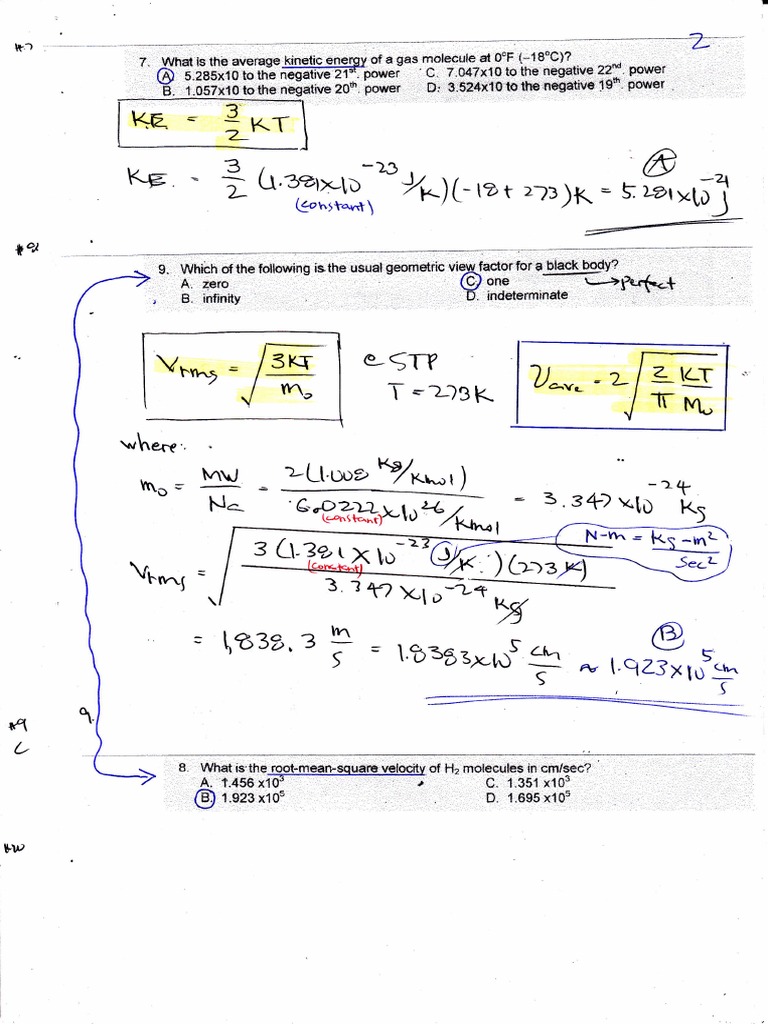 #7
2
7. What is the average kinetic energy of a gas molecule at 0°F (–18°C)?
A. 5.285x10 to the negative 21st. power C. 7.047x10 to the negative 22nd. power
B. 1.057x10 to the negative 20th. power D. 3.524x10 to the negative 19th. power
K.E = 3/2 KT
KE. = 3/2 (1.381x10^-23 J/K)(-18+273)K = 5.281x10^-21 J
(constant)
A
#8
9. Which of the following is the usual geometric view factor for a black body?
A. zero C. one → perfect
B. infinity D. indeterminate
Vrms = √(3KT/mo) @ STP Vave = 2√(2/π KT/Mo)
T = 273K
where:
mo = MW/Na = 2(1.008 Kg/Kmol) / 6.0222x10^26/Kmol = 3.347x10^-24 Kg
(constant)
N-m = Kg-m²/sec²
Vrms = √(3(1.381x10^-23 J/K)(273K) / 3.347x10^-24 Kg)
(constant)
= 1,838.3 m/s = 1.8383x10^5 cm/s ≈ 1.923x10^5 cm/s
B
#9
C
9.
8. What is the root-mean-square velocity of H2 molecules in cm/sec?
A. 1.456 x10³ C. 1.351 x10³
B. 1.923 x10⁵ D. 1.695 x10⁵
#10